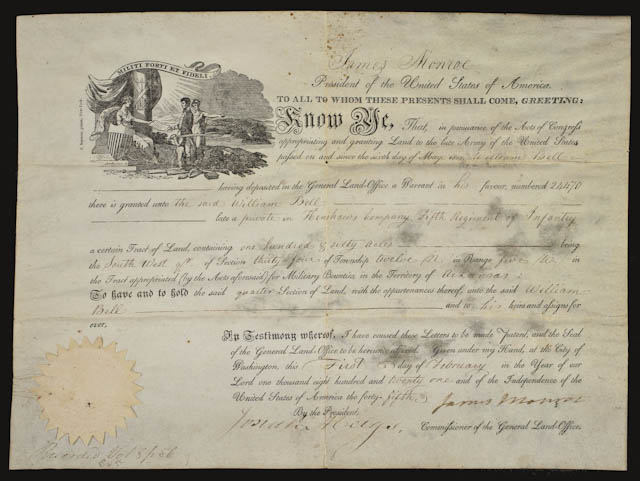 MILITI FORTI ET FIDELI
James Monroe
President of the United States of America.
TO ALL TO WHOM THESE PRESENTS SHALL COME, GREETING:
Know Ye, That, in pursuance of the Acts of Congress
appropriating and granting Land to the late Army of the United States
passed on and since the sixth day of May, 1812, William Bell
having deposited in the General Land-Office a Warrant in his favour, numbered 24470
there is granted unto the said William Bell
late a private in Henshaw's Company Fifth Regiment of Infantry
a certain Tract of Land, containing one hundred & sixty acres being
the South West qr. of Section thirty four of Township twelve N. in Range five W. in
the Tract appropriated (by the Acts aforesaid) for Military Bounties, in the Territory of Arkansas:
To have and to hold the said quarter Section of Land, with the appurtenances thereof, unto the said William
Bell and to his heirs and assigns for
ever.
In Testimony whereof, I have caused these Letters to be made Patent, and the Seal
of the General Land-Office to be hereunto affixed. Given under my Hand, at the City of
Washington, this First day of February in the Year of our
Lord one thousand eight hundred and twenty one and of the Independence of the
United States of America the forty-fifth.
James Monroe
By the President,
Josiah Meigs, Commissioner of the General Land-Office.
Recorded Vol 8 p 56